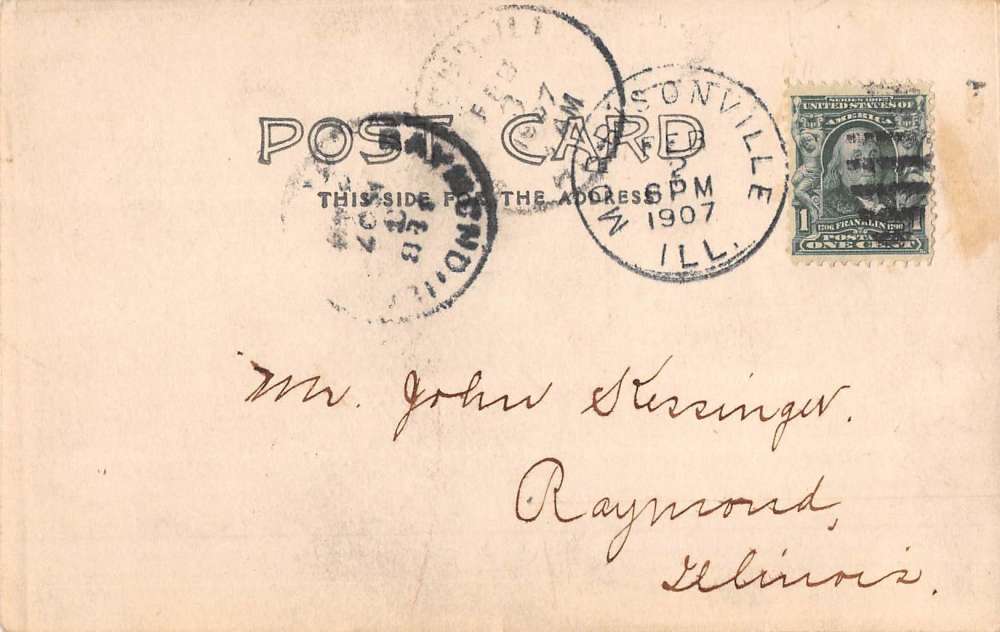 POST CARD
THIS SIDE FOR THE ADDRESS
RAYMOND, ILL.
FEB
1907
FEB
7
AM
MORRISONVILLE
FEB
2
6 PM
1907
ILL.
SERIES 1902
UNITED STATES OF
AMERICA
1706 FRANKLIN 1790
POSTAGE
1 ONE CENT 1
Mr. John Kessinger.
Raymond,
Illinois.